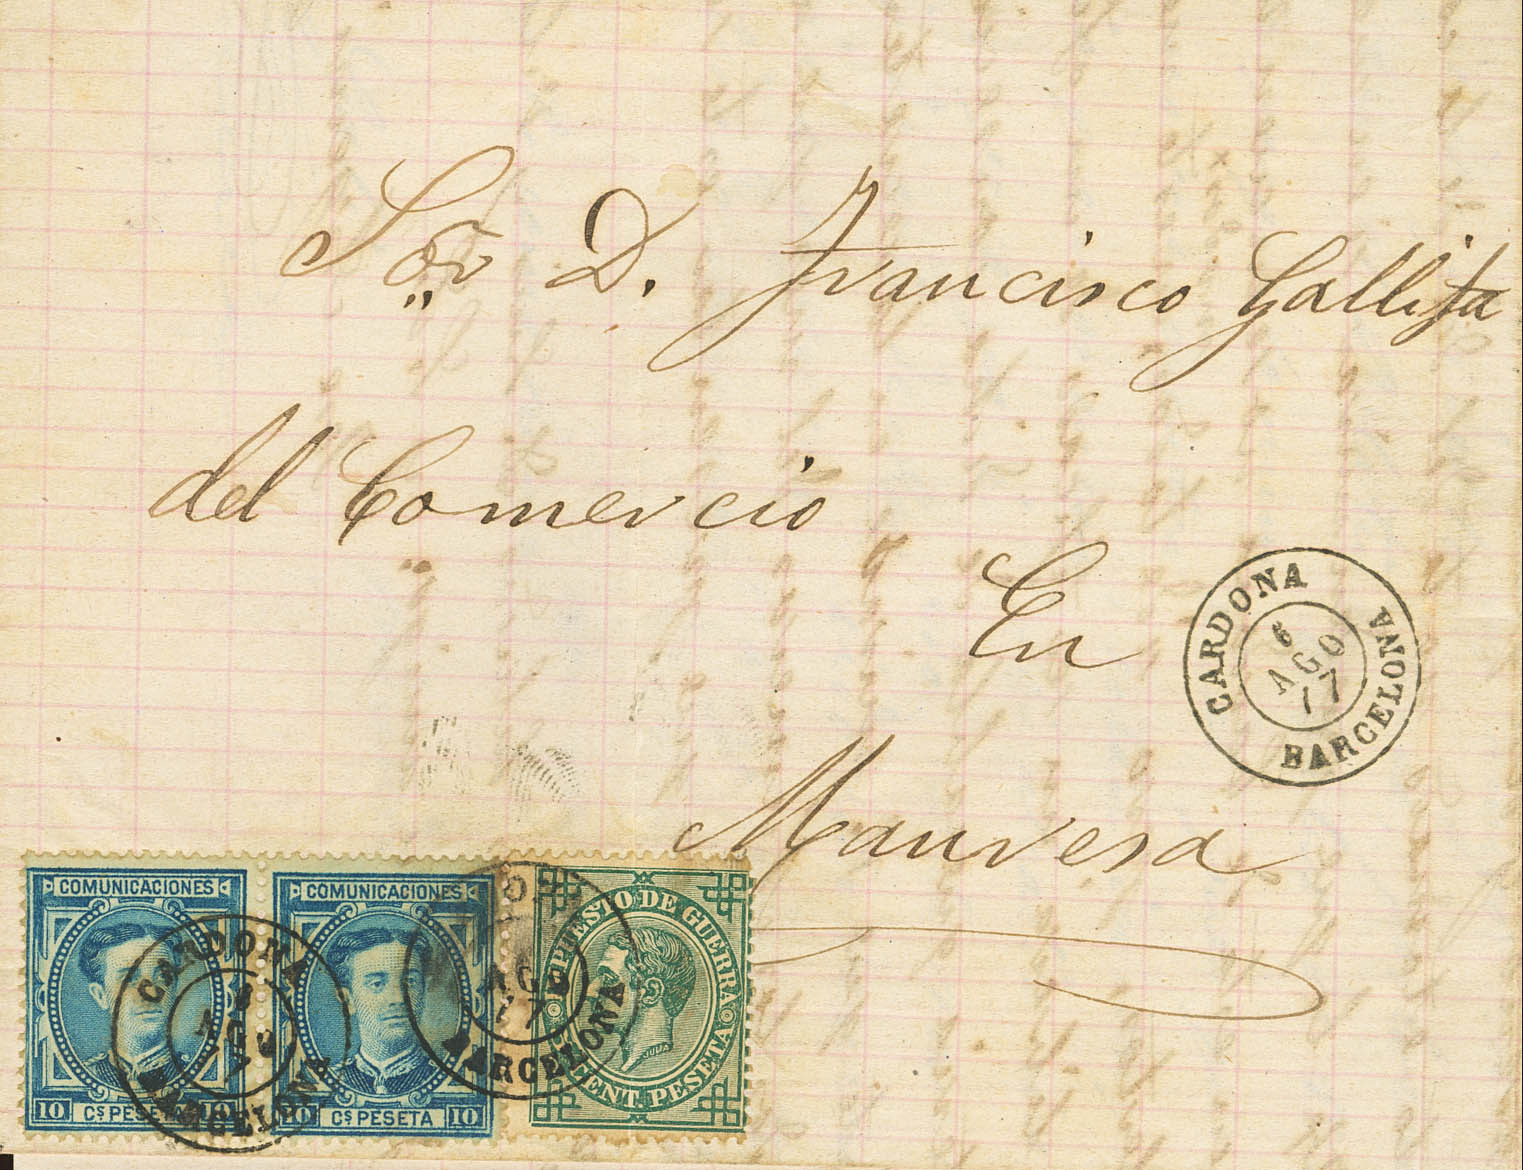 Sor D. Francisco Gallifa
del Comercio
En
Manresa
CARDONA
6
AGO
77
BARCELONA
COMUNICACIONES
10 Cs PESETA 10
COMUNICACIONES
10 Cs PESETA 10
IMPUESTO DE GUERRA
5 CENT. PESETA
JULIA
CARDONA
6
AGO
77
BARCELONA
AGO
77
BARCELONA